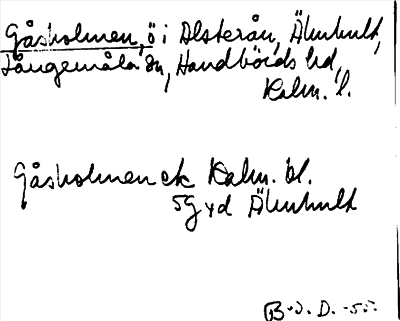 Gåsholmen, ö i Alsterån, Älmhult,
Långemåla sn, Handbörds hd,
Kalm. l.
Gåsholmen ek Kalm. bl.
5g yd Älmhult
B. D. -55.